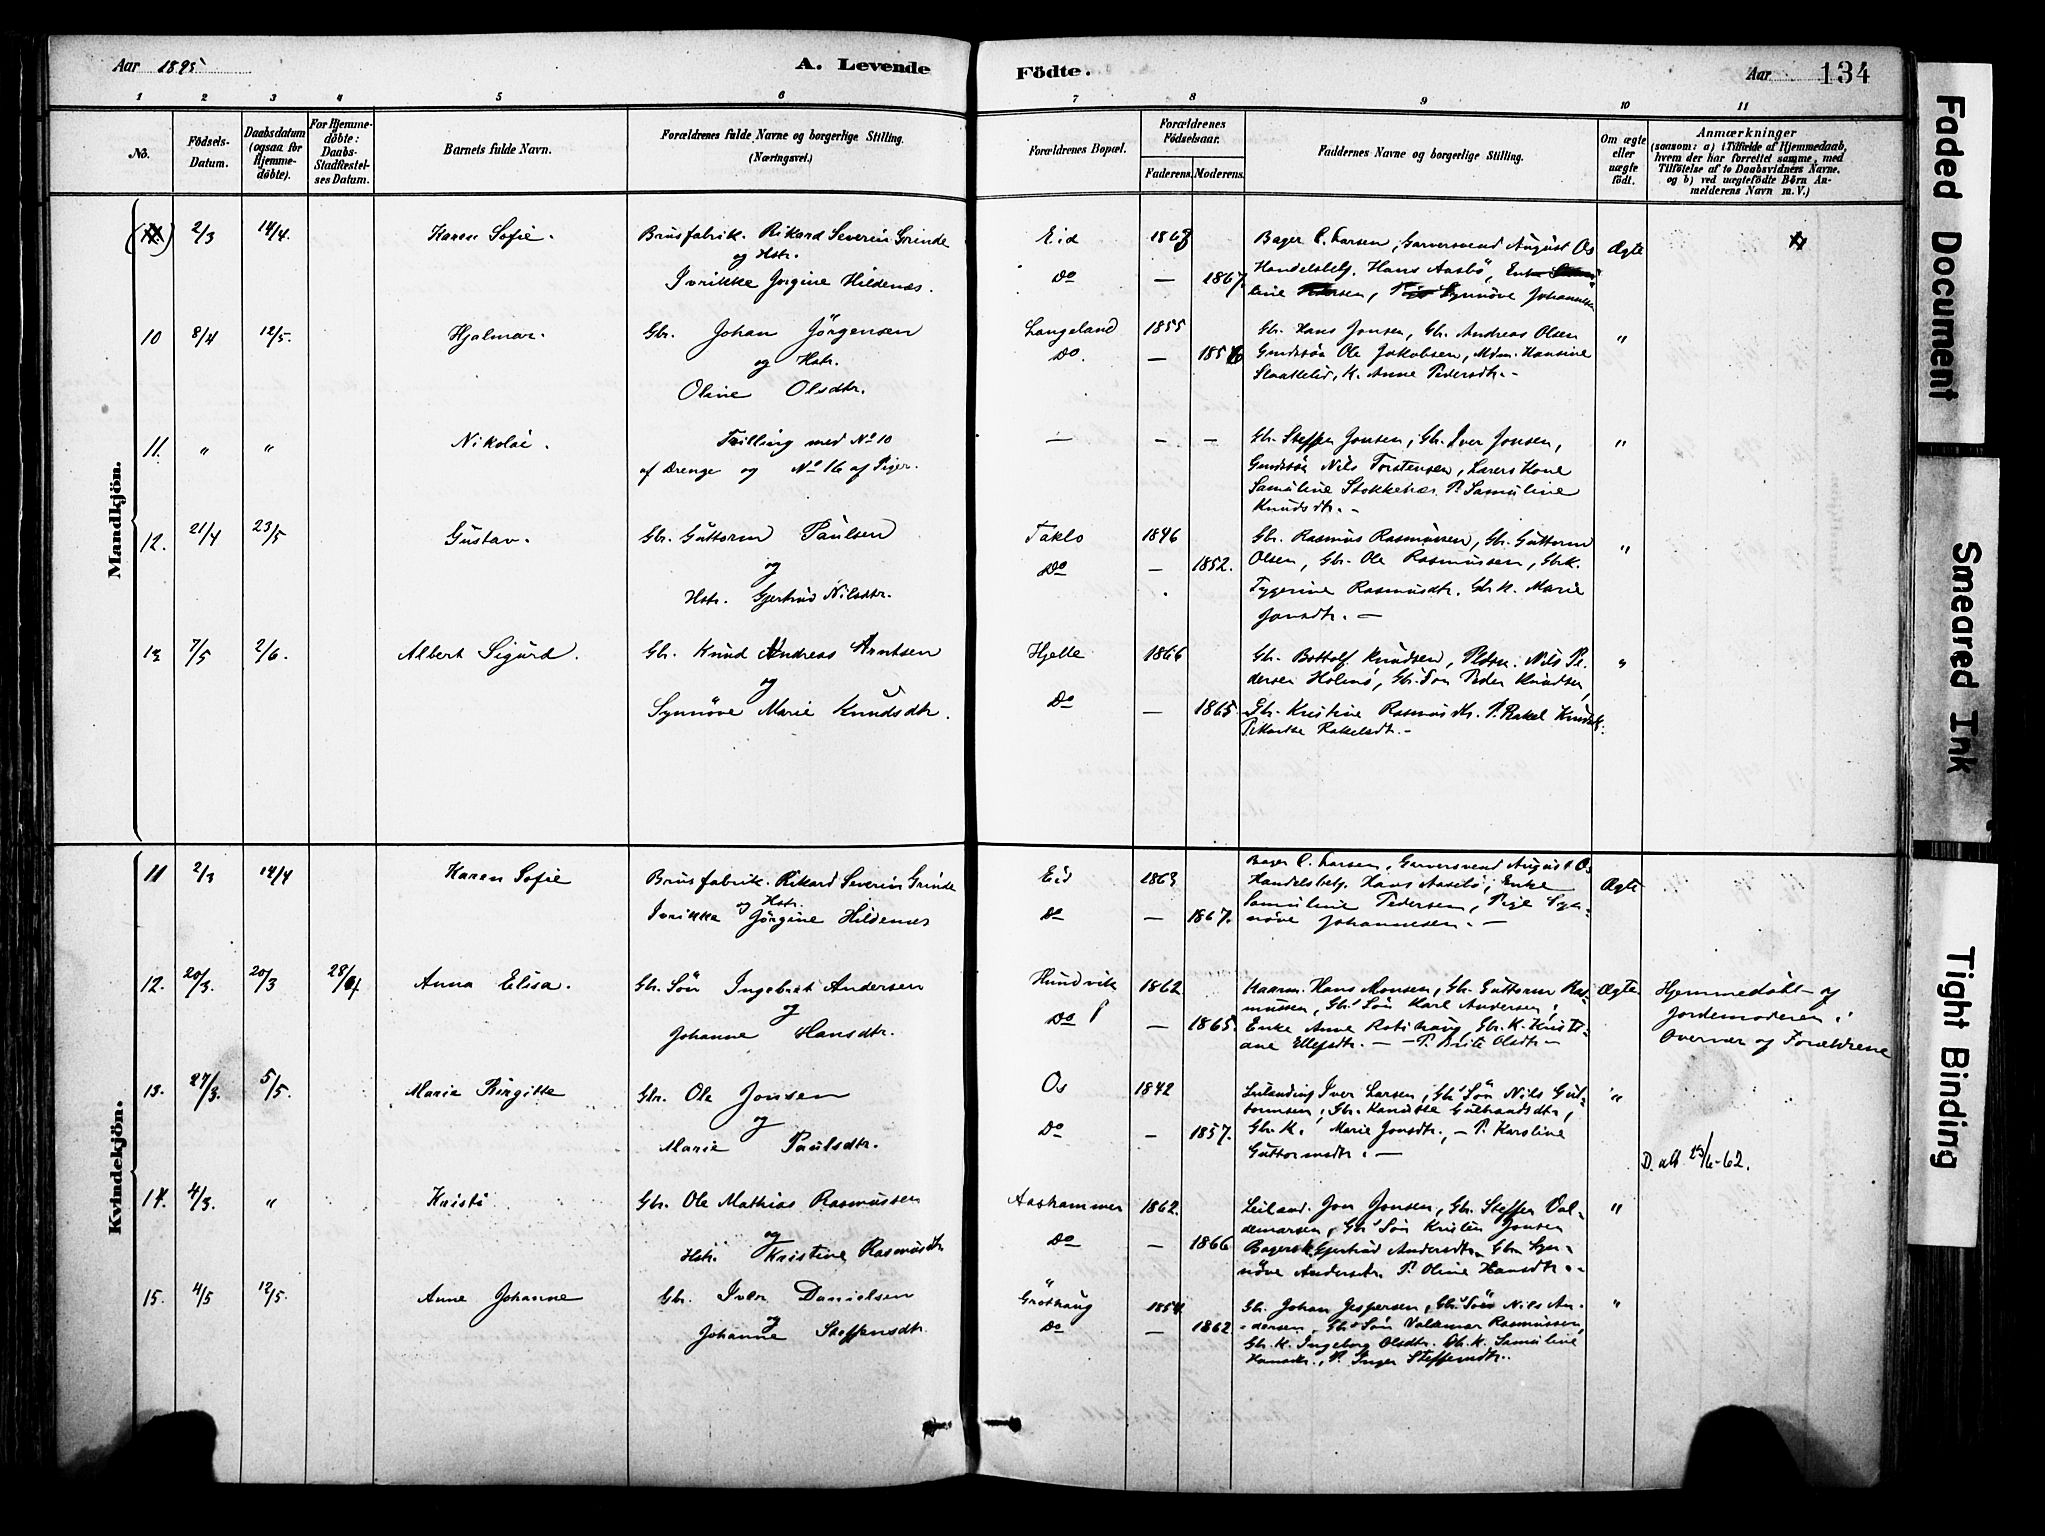 Aar 1895
A. Levende
Födte.
Aar
134
1 2 3 4 5 6 7 8 9 10 11
No.
Födsels-Datum.
Daabsdatum (ogsaa for Hjemmedöbte).
For Hjemmedöbte: Daabs-Stadfæstelses Datum.
Barnets fulde Navn.
Forældrenes fulde Navne og borgerlige Stilling.
(Næringsvei.)
Forældrenes Bopæl.
Forældrenes Födselsaar.
Faderens. Moderens.
Faddernes Navne og borgerlige Stilling.
Om ægte eller uægte födt.
Anmærkninger
(saasom: a) i Tilfælde af Hjemmedaab,
hvem der har forrettet samme, med
Tilföielse af to Daabsvidners Navne,
og b) ved uægtefödte Börn Anmelderens Navn m. V.)
Mandkjön.
2/3 14/4. Karen Sofie. Brusfabrik. Rikard Severin Grinde Eid 1863 Bager C. Larsen, Garversvend August Os Ægte
og Hstr.
Ivrikke Jorgine Hildenæs. Do — 1867. Handelsbetj. Hans Aasbö, Enke
line Pedersen, Synnöve Johannesen
10 8/4 12/5. Hjalmar. Gbr. Johan Jörgensen Langeland 1855 Gbr. Hans Jonsen, Gbr. Andreas Olsen "
og Hstr. Do. — Ole Jakobsen, Mdm. Hansine
Oline Olsdtr. K. Anne Pedersdtr. -
11. " " Nikolai. Trilling med No 10 — — — Gbr. Steffen Jonsen, Gbr. Iver Jonsen, "
af Drenge og No 16 af Piger. Nils Torstensen, Lærers Kone
Samuline Stokkenes P. Samuline
Knudsdtr. -
12. 21/4 23/5 Gustav. Gbr. Guttorm Paulsen Taklo 1846 Gbr. Rasmus Rasmussen, Gbr. Guttorm "
og Do — 1852. Olsen, Gbr. Ole Rasmussen, Gbrk.
Hstr. Gjertrud Nilsdtr. Rasmusdtr. Gbrk. Marie
Jonsdtr. —
13 7/5 2/6. Albert Sigurd. Gbr. Knud Andreas Arntsen Hjelle 1866 Gbr. Bottolf Knudsen, Nils Pe- "
og dersen Holmö, Gbr. Sön Peder Knudsen,
Synnöve Marie Knudsdtr. Do — 1865. Kristine Rasmusdtr. P. Rakel Knudsdtr.
Rakelsdtr. -
Kvindekjön.
11 2/3 14/4 Karen Sofie Brusfabrik. Rikard Severin Grinde Eid 1863 Bager C. Larsen, Garversvend August Os Ægte
og Hstr. Handelsbetj. Hans Aasebö, Enke
Ivrikka Jörgine Hildenæs Do — 1867. Samuline Pedersen, Pige Syn-
növe Johannesen. —
12. 20/3. 20/3 28/4 Anna Elisa. Gbr. Sön Ingebrat Andersen Hundvik 1862 Hans Monsen, Gbr. Guttorm Ras- Ægte Hjemmedöbt af
og mussen, Gbr. Sön Karl Andersen, Jordemoderen i
Johanne Hansdtr. Do — 1865. Enke Anne Rotihaug, Gbr. K. Kristi- Overvær af Forældrene
ane Ellefsdtr. — P. Brite Olsdtr —
13. 27/3. 5/5. Marie Birgitte Gbr. Ole Jonsen Os 1842 Iver Larsen, Gbr. Sön Nils Gut- "
og tormsen, Gbr. Gulbrandsdtr,
Marie Paulsdtr. Do — 1857. Gbr. K. Marie Jonsdtr., — P. Karoline
Guttormsdtr. — D. att 23/6-62.
14. 4/3. " Kristi Gbr. Ole Mathias Rasmussen Aashammer 1862. Jon Jonsen, Gbr. Steffen Val- "
og demarsen, Gbr. Sön Kristen Jonsen
Hstr. Kristine Rasmusdtr Do — 1866 Gjertrud Andersdtr. Gbr. Syn-
növe Andersdtr. P. Oline Hansdtr. -
15. 4/5 12/5. Anne Johanne Gbr. Iver Danielsen Gröthaug 1854 Gbr. Johan Jespersen, Gbr. Sön Nils An- "
og dersen, Gbr. Sön Valdemar Rasmussen
Johanne Steffensdtr. Do — 1862 Gbr. K. Ingeborg Olsdtr. Gbr. K. Samuline
Hansdtr., P. Inger Steffensdtr.
Faded Document
Smeared Ink
Tight Binding